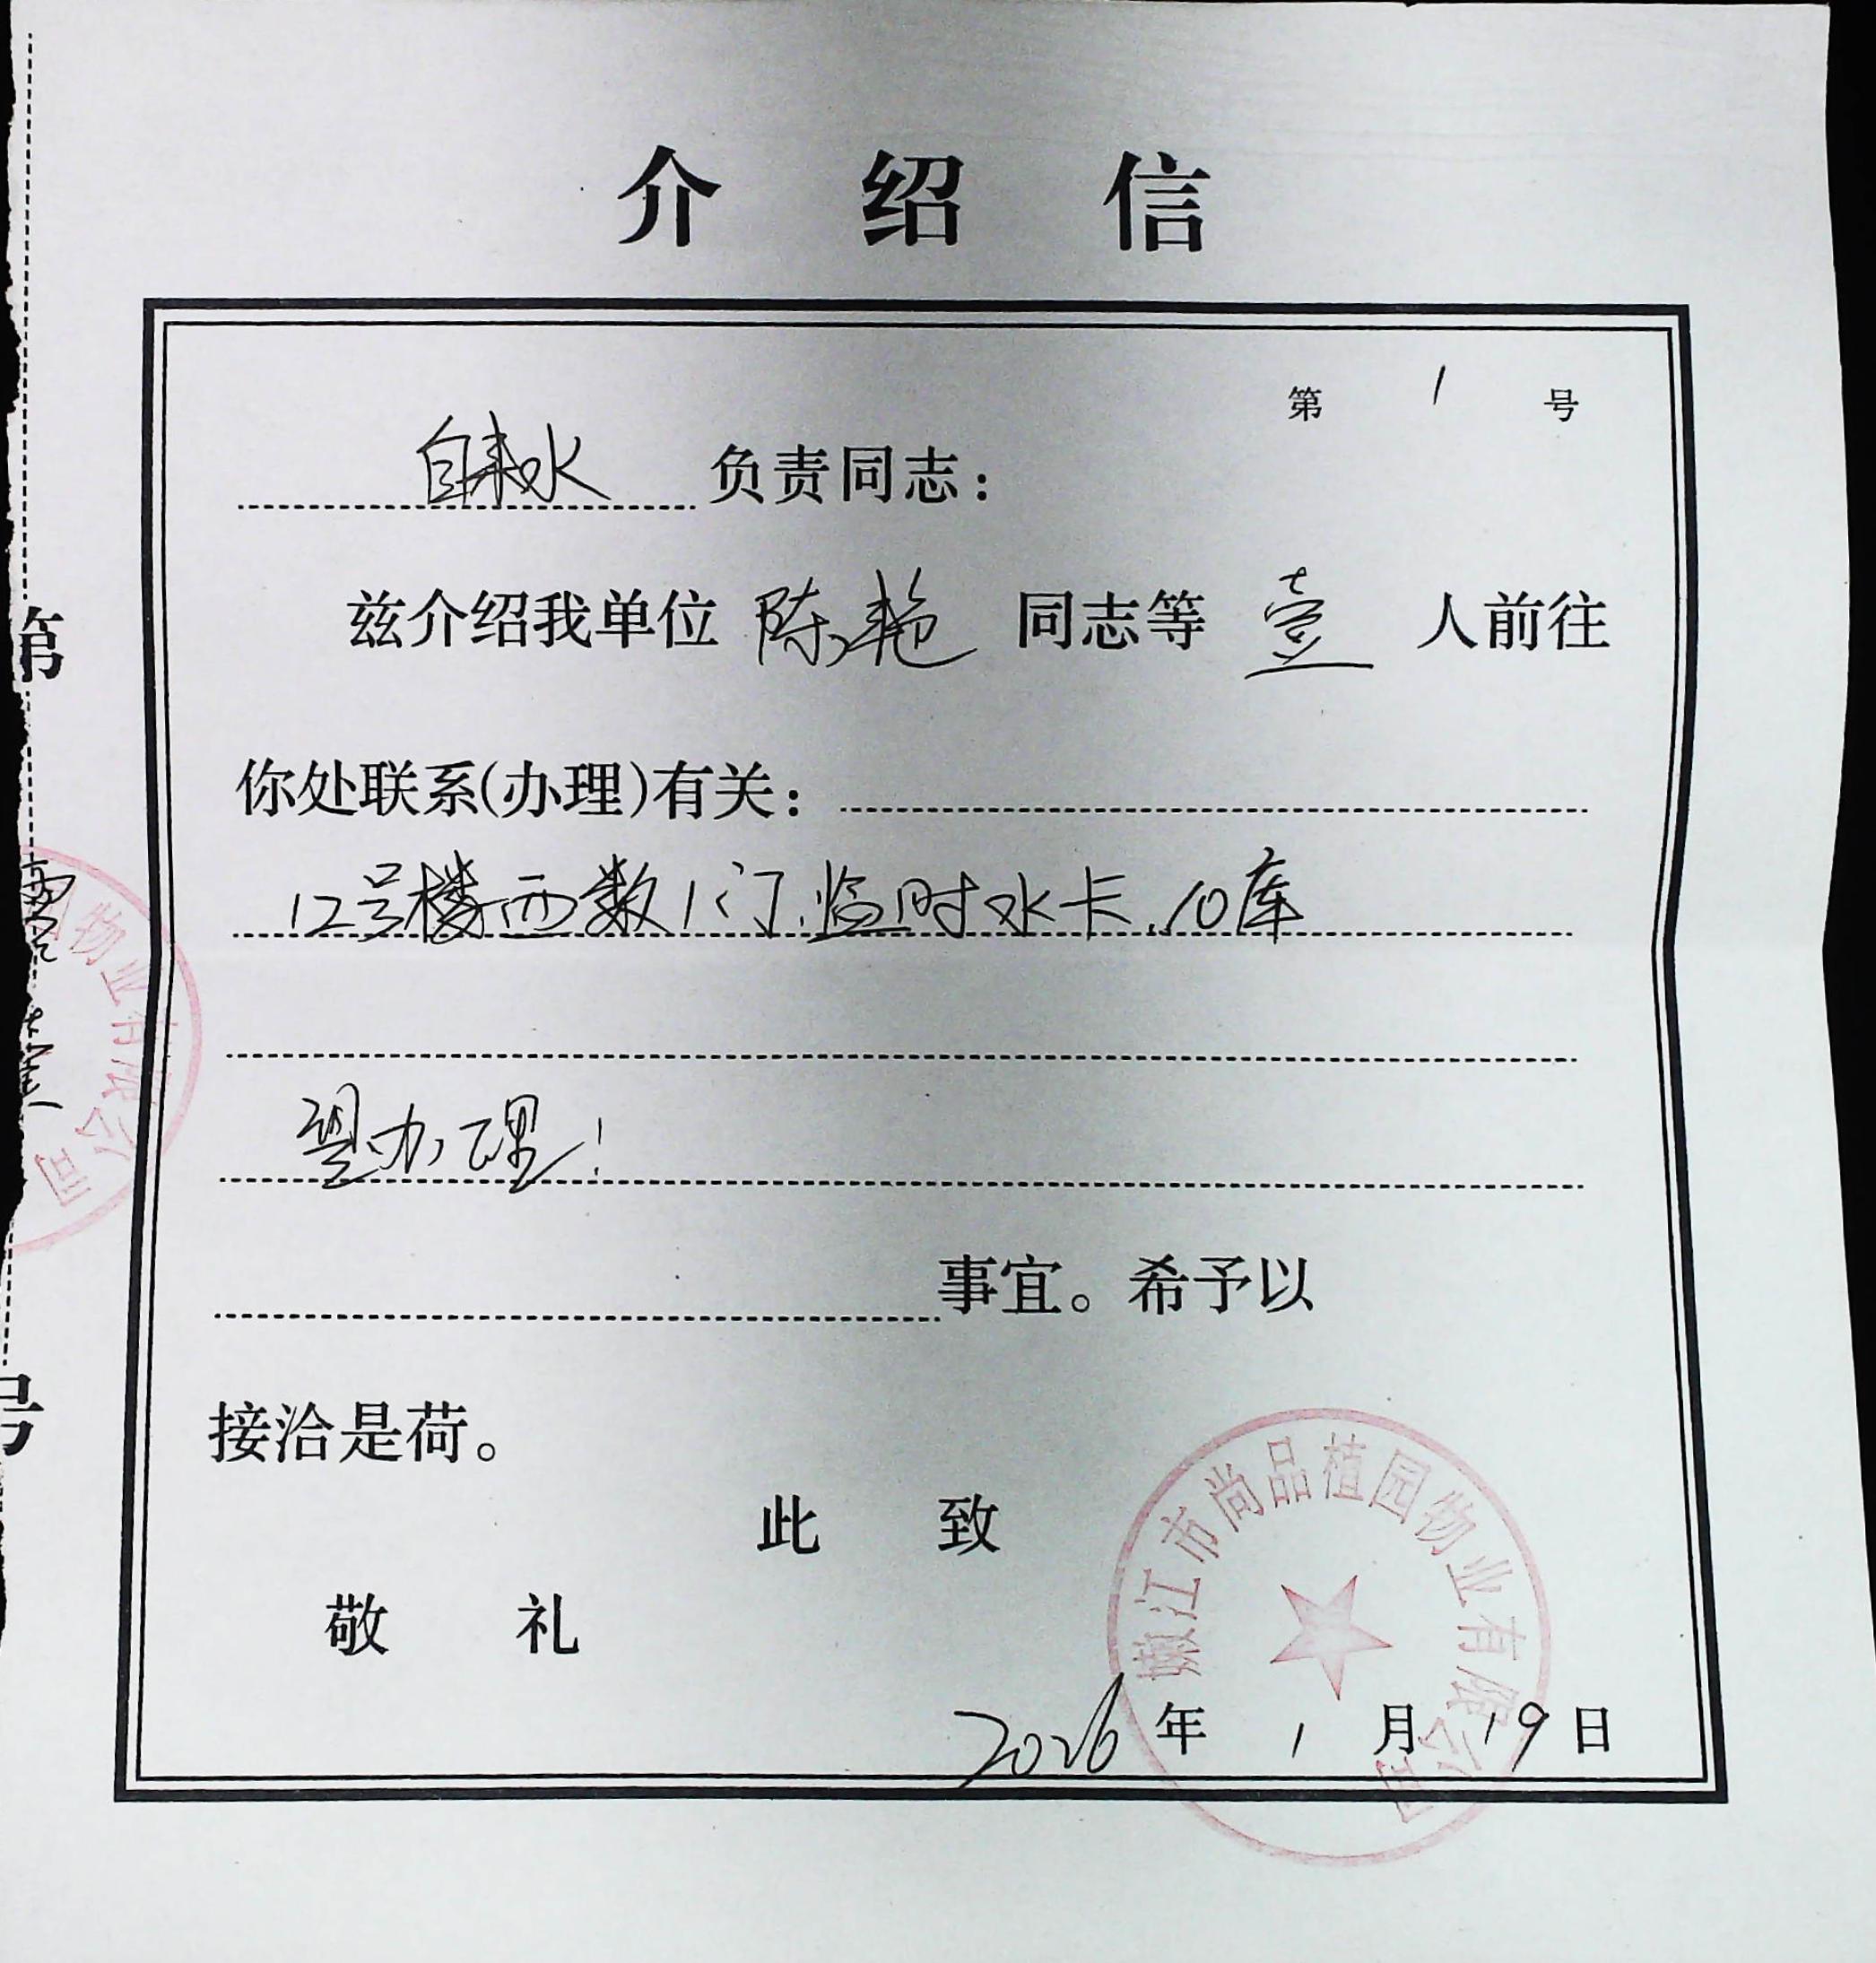 介绍信
第 1 号
自来水 负责同志：
兹介绍我单位 陈艳 同志等 壹 人前往
你处联系(办理)有关：
12号楼西数1门.临时水卡.10库
望办理！
事宜。希予以
接洽是荷。
此致
敬礼
2026 年 1 月 19 日
嫩江市尚品植园物业有限公司
第
壹
号
物业有限公司